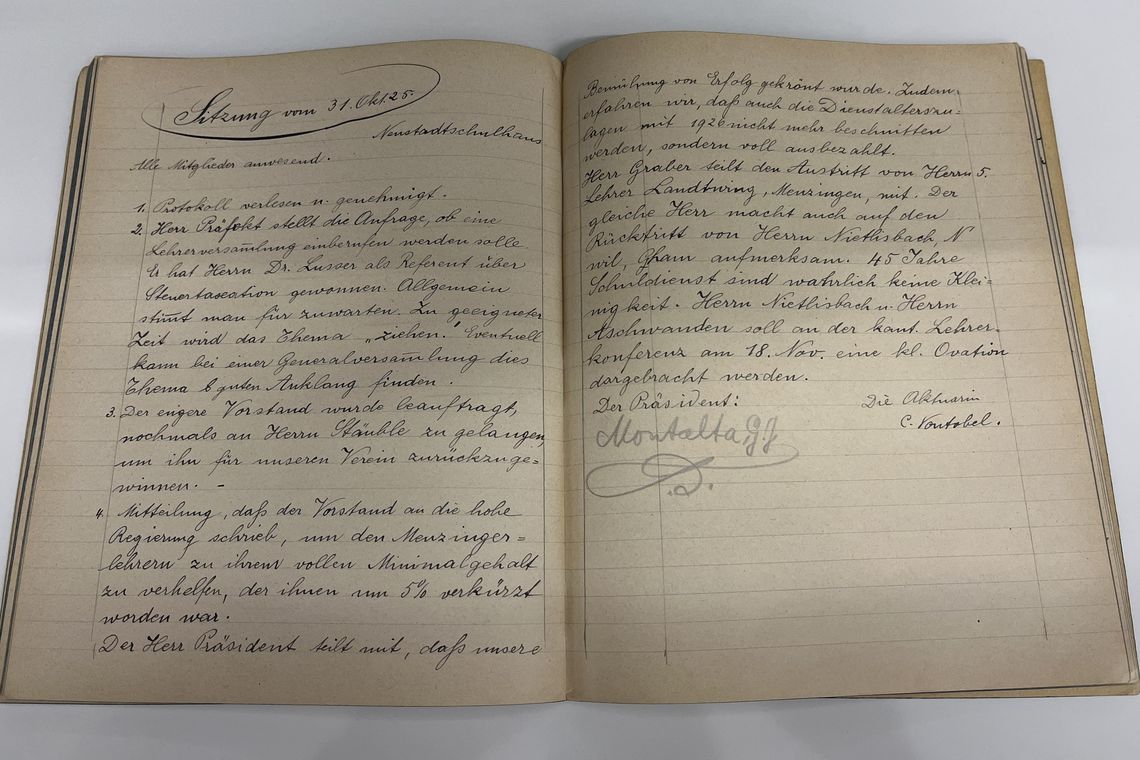 Sitzung vom 31. Okt. 25.
Neustadtschulhaus
Alle Mitglieder anwesend.
1. Protokoll verlesen u. genehmigt.
2. Herr Präfekt stellt die Anfrage, ob eine
Lehrerversam̄lung einberufen werden solle.
Er hat Herrn Dr. Lusser als Referent über
Steuertaxation gewonnen. Allgemein
stim̄t man für zuwarten. Zu geeigneter
Zeit wird das Thema „ziehen." Eventuell
kann bei einer Generalversam̄lung dies
Thema guten Anklang finden.
3. Der engere Vorstand wurde beauftragt,
nochmals an Herrn Stäuble zu gelangen
um ihn für unseren Verein zurückzuge=
winnen. -
4. Mitteilung, daß der Vorstand an die hohe
Regierung schrieb, um den Menzinger=
lehrern zu ihrem vollen Minimalgehalt
zu verhelfen, der ihnen um 5% verkürzt
worden war.
Der Herr Präsident teilt mit, daß unsere
Bemühung von Erfolg gekrönt wurde. Zudem
erfahren wir, daß auch die Dienstalterszu-
lagen mit 1926 nicht mehr beschnitten
werden, sondern voll ausbezahlt.
Herr Graber teilt den Austritt von Herrn 5.
Lehrer Landtwing, Menzingen, mit. Der
gleiche Herr macht auch auf den
Rücktritt von Herrn Nietlisbach, N
wil, Cham aufmerksam. 45 Jahre
Schuldienst sind wahrlich keine Klei=
nigkeit. Herrn Nietlisbach u. Herrn
Aschwanden soll an der kant. Lehrer-
konferenz am 18. Nov. eine kl. Ovation
dargebracht werden.
Der Präsident: Die Aktuarin
Montalta C. Vontobel.